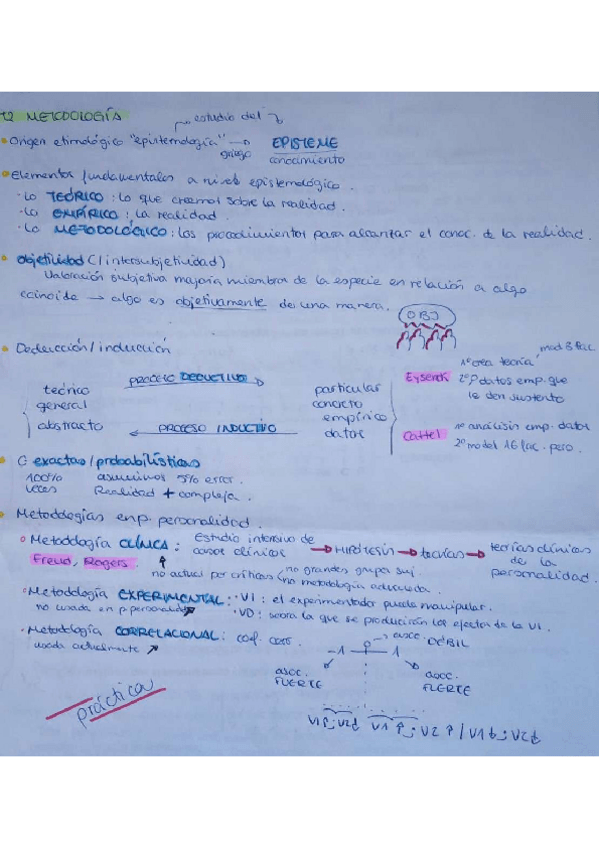 T2 METODOLOGÍA
estudio del
• Origen etimológico "epistemología" → EPISTEME
griego conocimiento
• Elementos fundamentales a nivel epistemológico.
- Lo TEÓRICO: lo que creemos sobre la realidad.
- Lo EMPÍRICO: la realidad.
- Lo METODOLÓGICO: los procedimientos para alcanzar el conoc. de la realidad.
• Objetividad (/intersubjetividad)
Valoración subjetiva mayoría miembros de la especie en relación a algo
→ algo es objetivamente de una manera.
OBJ
• Deducción/inducción
teórico
general
abstracto
PROCESO DEDUCTIVO →
← PROCESO INDUCTIVO
particular
concreto
empírico
datos
mod 3 fac.
Eysenck 1º crea teoría
2º datos emp. que
le den sustento
Cattel 1º análisis emp. datos
2º model 16 fac. pers.
• C. exactas/probabilísticas
100% asumimos 5% error.
veces Realidad + compleja.
• Metodologías en p. personalidad.
• Metodología CLÍNICA: Estudio intensivo de
casos clínicos → HIPÓTESIS → teorías → teorías clínicas
de la
personalidad.
Freud, Rogers
no actual por críticas no grandes grupos suj.
no metodología adecuada.
• Metodología EXPERIMENTAL: · VI: el experimentador puede manipular.
no usada en p. personalidad · VD: sobre la que se producirán los efectos de la VI.
• Metodología CORRELACIONAL: coef. corr.
usada actualmente
-1 0 1
→ asoc. DÉBIL
asoc. FUERTE
asoc. FUERTE
práctica